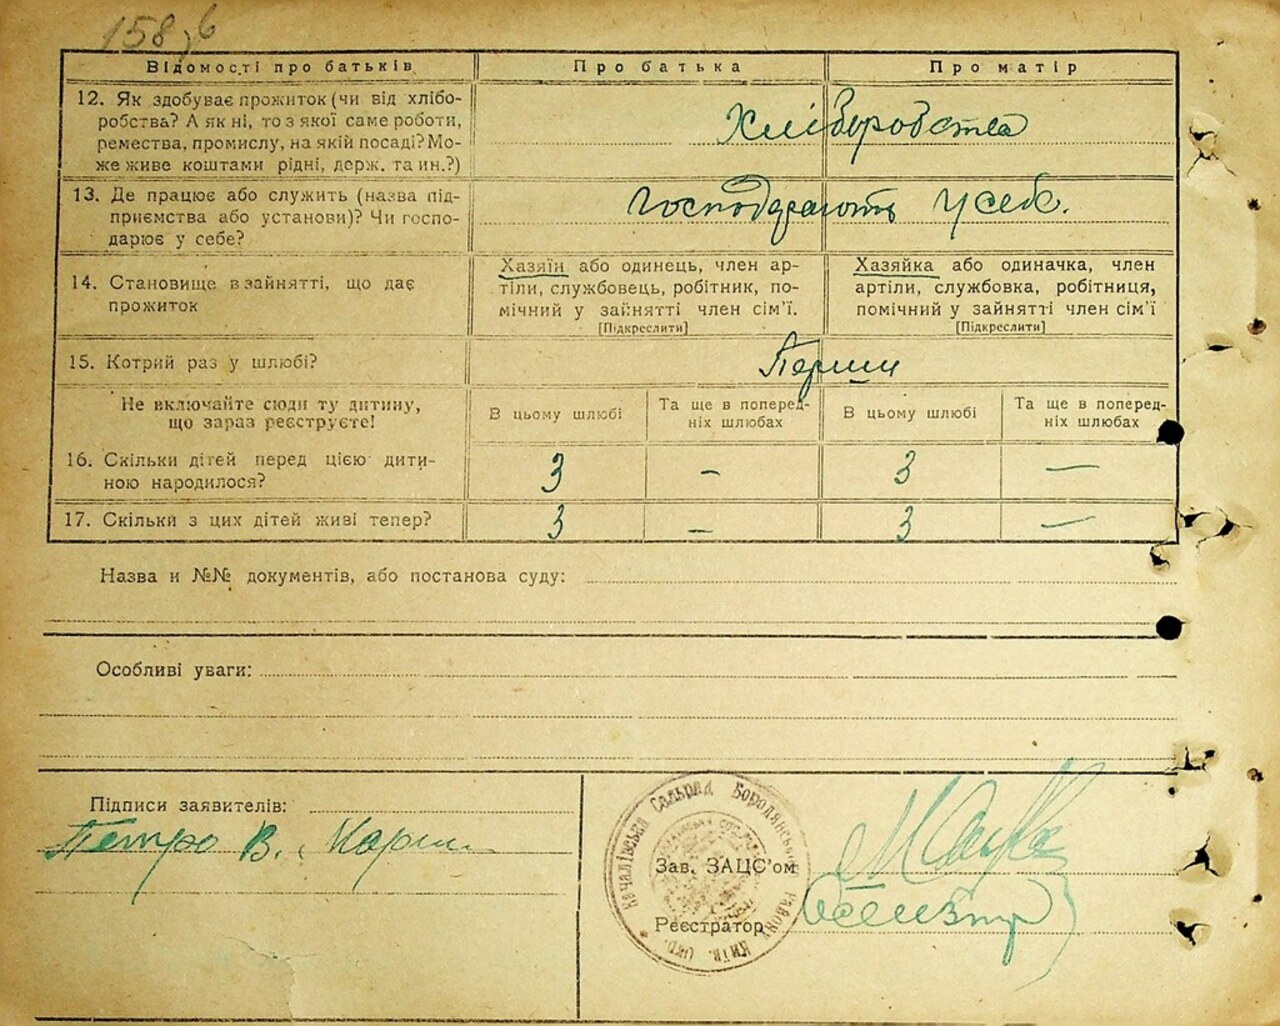 158
Відомості про батьків Про батька Про матір
12. Як здобуває прожиток (чи від хлібо-
робства? А як ні, то з якої саме роботи,
ремества, промислу, на якій посаді? Мо-
же живе коштами рідні, держ. та ин.?)
Хліборобства
13. Де працює або служить (назва під-
приємства або установи)? Чи госпо-
дарює у себе?
Господарають у себе.
14. Становище в зайнятті, що дає
прожиток
Хазяїн або одинець, член ар-
тіли, службовець, робітник, по-
мічний у зайнятті член сім'ї.
[Підкреслити]
Хазяйка або одиначка, член
артіли, службовка, робітниця,
помічний у зайнятті член сім'ї
[Підкреслити]
15. Котрий раз у шлюбі?
Перший
Не включайте сюди ту дитину,
що зараз реєструєте!
В цьому шлюбі
Та ще в поперед-
ніх шлюбах
В цьому шлюбі
Та ще в поперед-
ніх шлюбах
16. Скільки дітей перед цією дити-
ною народилося?
3 – 3 —
17. Скільки з цих дітей живі тепер? 3 – 3 —
Назва и №№ документів, або постанова суду:
Особливі уваги:
Підписи заявителів:
Петро В.
Качалівська Сельрад Бородянського району Київ. Окр.
Зав. ЗАЦС'ом
Реєстратор